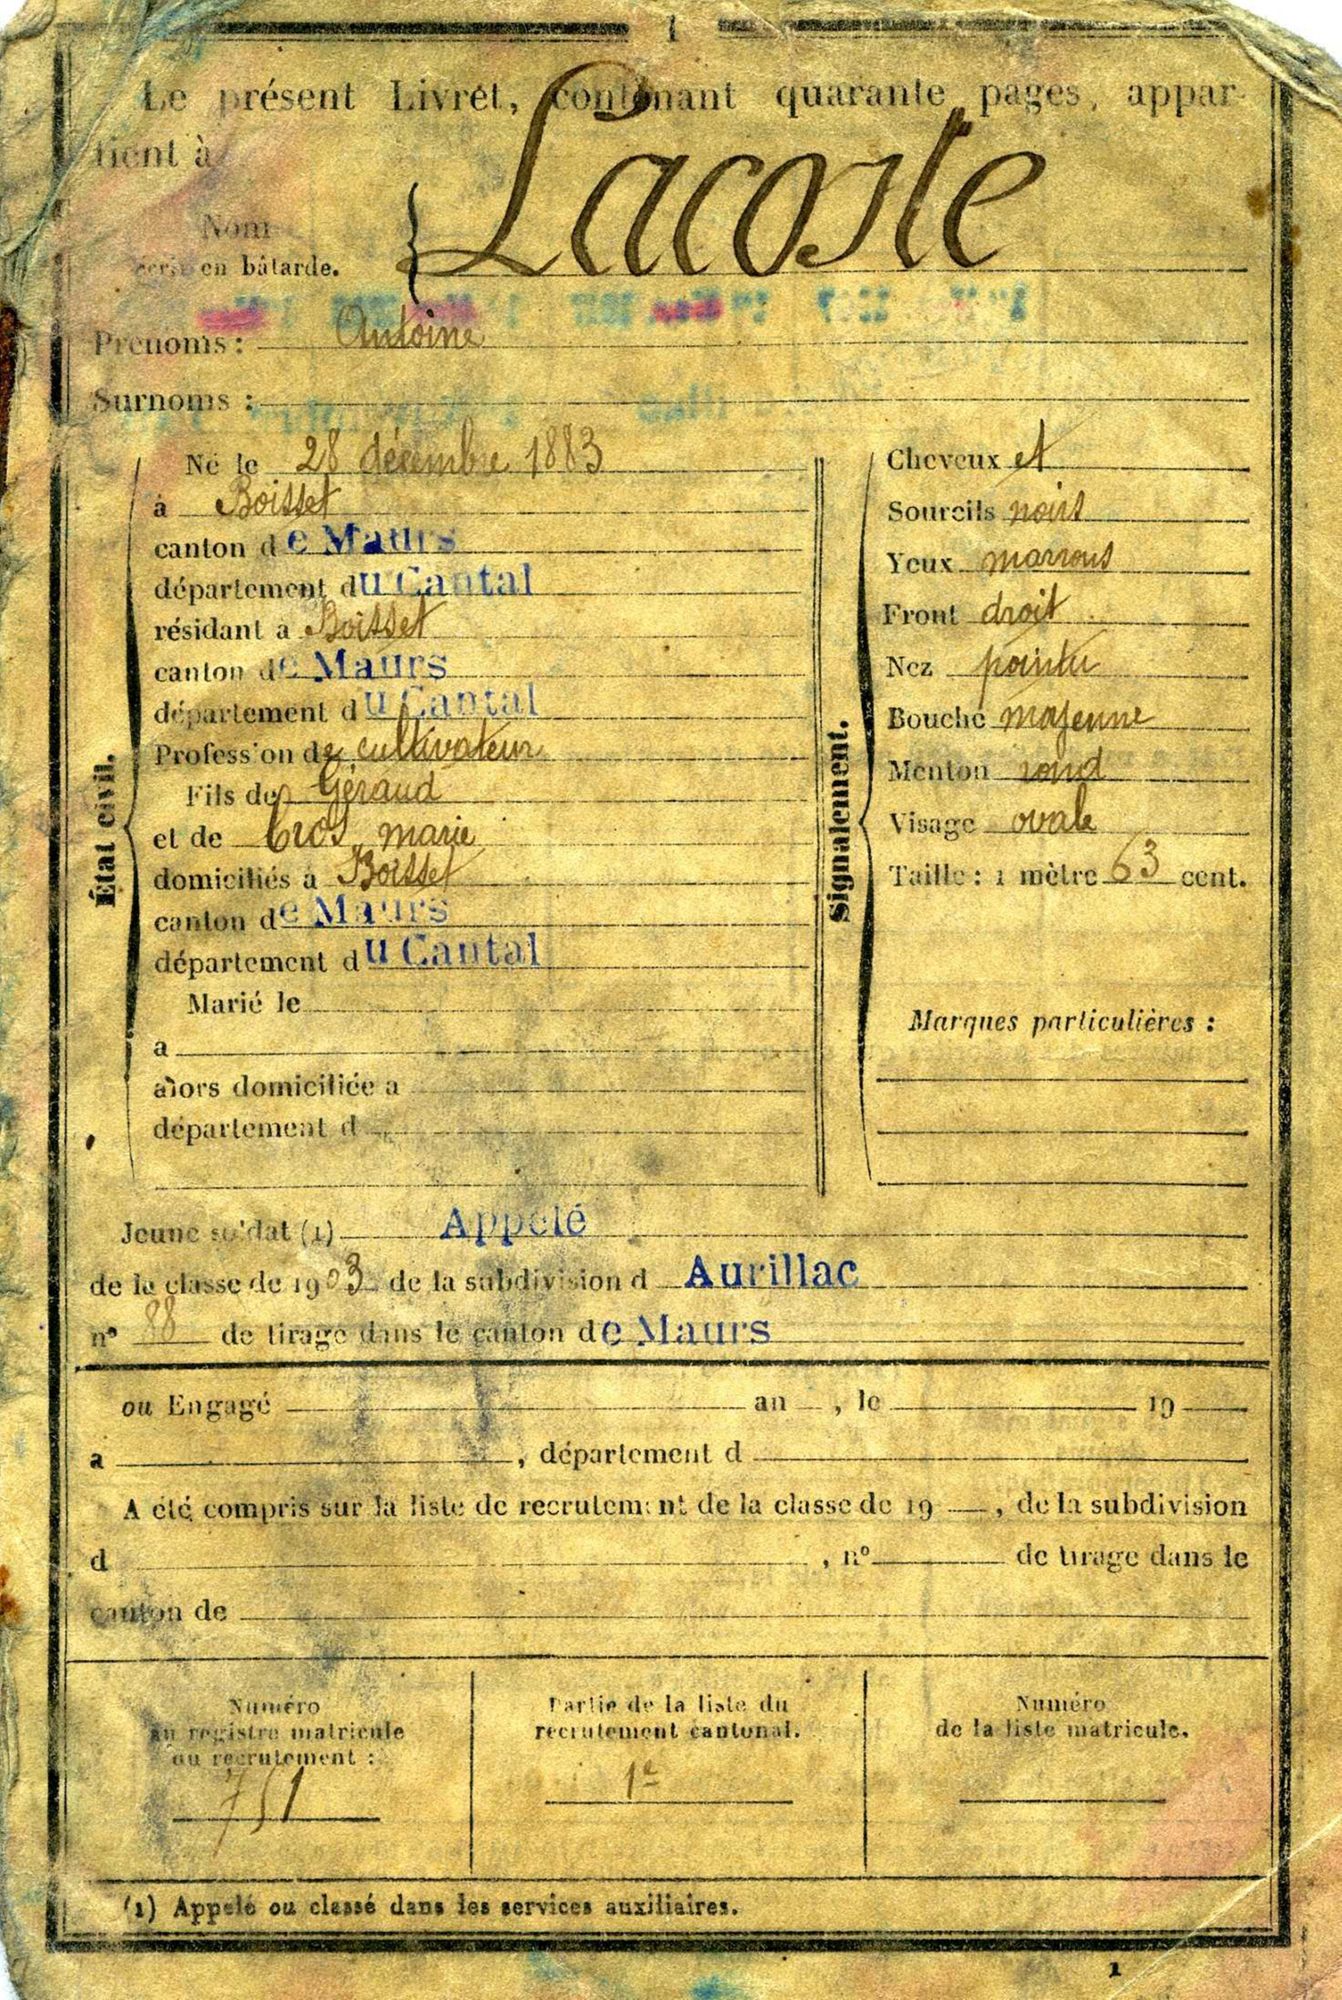 1
Le présent Livret, contenant quarante pages, appar-
tient à
Lacoste
Nom
écrit en bâtarde.
Prénoms : Antoine
Surnoms :
État civil.
Né le 28 décembre 1883
à Boisset
canton de Maurs
département du Cantal
résidant à Boisset
canton de Maurs
département du Cantal
Profession de cultivateur
Fils de Géraud
et de Cros marie
domiciliés à Boisset
canton de Maurs
département du Cantal
Marié le
à
alors domiciliée à
département d
Signalement.
Cheveux et
Sourcils noirs
Yeux marrons
Front droit
Nez pointu
Bouche moyenne
Menton rond
Visage ovale
Taille : 1 mètre 63 cent.
Marques particulières :
Jeune soldat (1) Appelé
de la classe de 1903 de la subdivision d Aurillac
n° 88 de tirage dans le canton de Maurs
ou Engagé an , le 19
à , département d
A été compris sur la liste de recrutement de la classe de 19 , de la subdivision
d , n° de tirage dans le
canton de
Numéro
au registre matricule
du recrutement :
751
Partie de la liste du
recrutement cantonal.
1e
Numéro
de la liste matricule.
(1) Appelé ou classé dans les services auxiliaires.
1